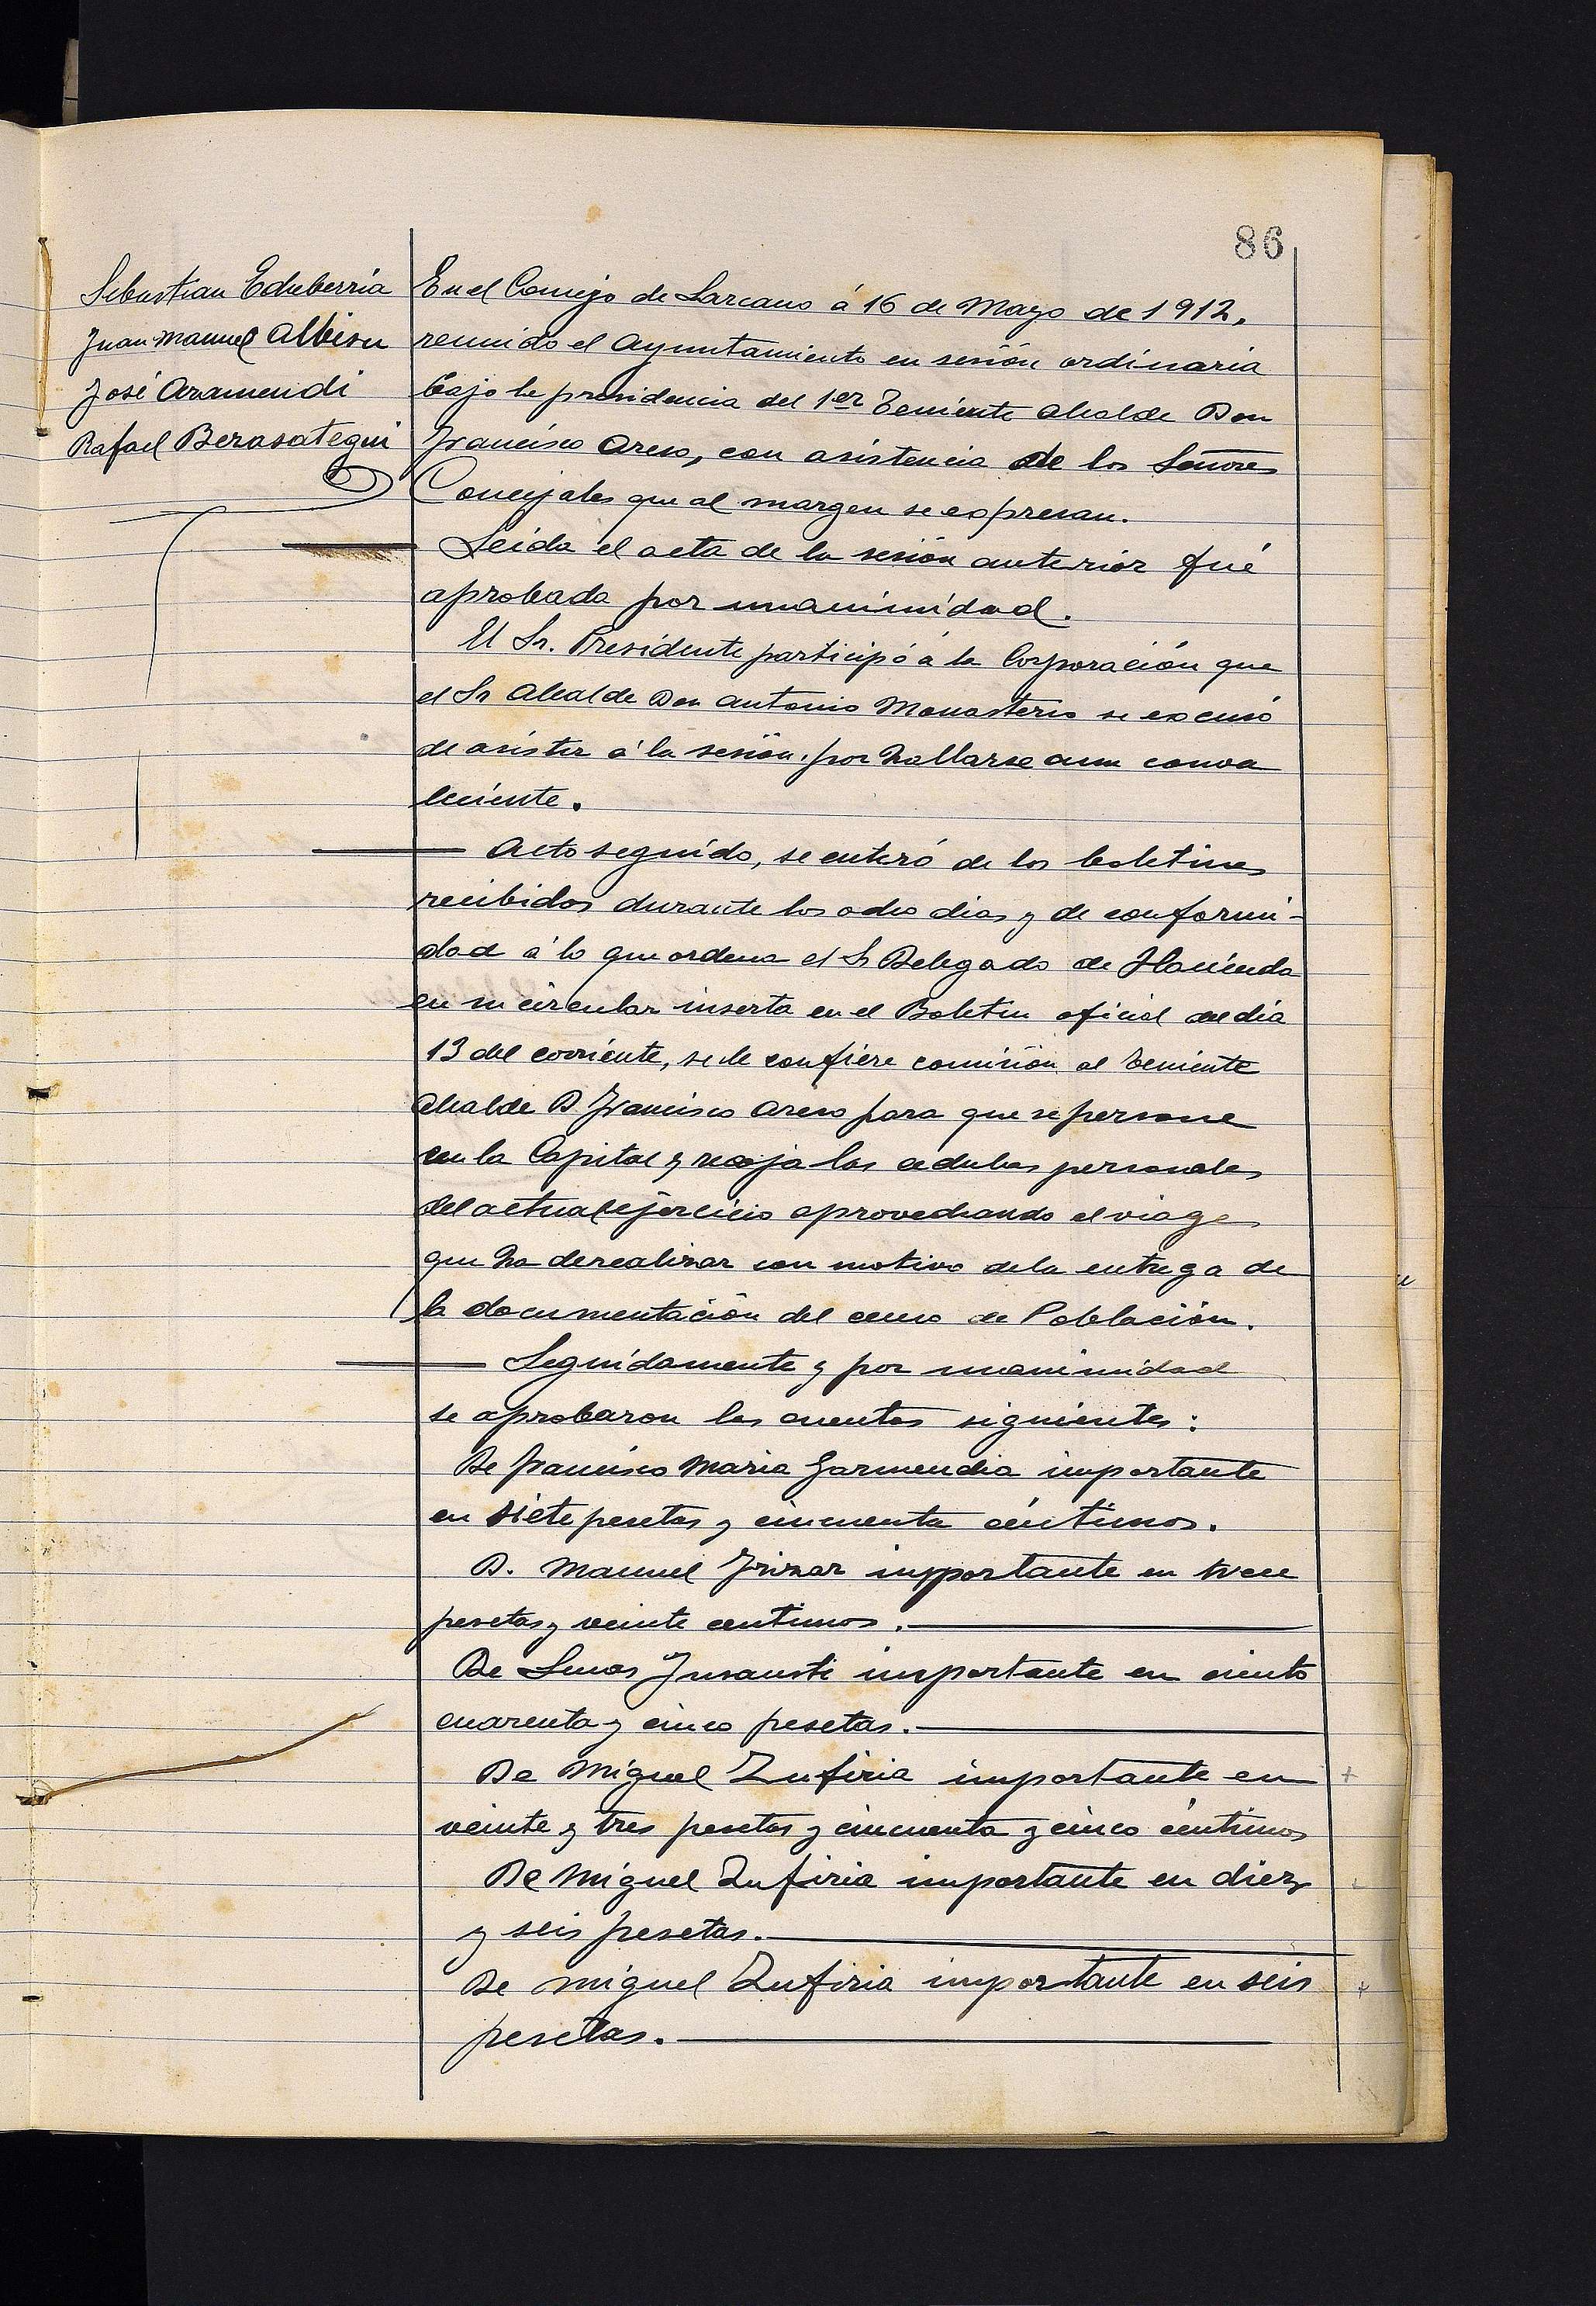 86
Sebastian Echeberria
Juan Manuel Albisu
José Aramendi
Rafael Berasategui
En el Concejo de Lazcano á 16 de Mayo de 1912,
reunido el Ayuntamiento en sesión ordinaria
bajo la presidencia del 1er Teniente Alcalde Don
Francisco Areso, con asistencia de los Señores
Concejales que al margen se expresan.
Leida el acta de la sesión anterior fué
aprobada por unanimidad.
El Sr. Presidente participó á la Corporación que
el Sr Alcalde Don Antonio Monasterio se excusó
de asistir á la sesión. por hallarse aun conva
leciente.
Acto seguido, se enteró de los boletines
recibidos durante los ocho dias y de conformi-
dad á lo que ordena el Sr Delegado de Hacienda
en su circular inserta en el Boletin oficial del dia
13 del corriente, se le confiere comisión al Teniente
Alcalde D. Francisco Areso para que se persone
en la Capital y recoja las cedulas personales
del actual ejercicio aprovechando el viage
que ha de realizar con motivo de la entrega de
la documentación del censo de Población.
Seguidamente y por unanimidad
se aprobaron las cuentas siguientes:
De Francisco Maria Garmendia importante
en siete pesetas y cincuenta céntimos.
D. Manuel Irizar importante en trece
pesetas y veinte centimos.
De Lucas Insausti importante en ciento
cuarenta y cinco pesetas.
De Miguel Zufiria importante en
veinte y tres pesetas y cincuenta y cinco céntimos
De Miguel Zufiria importante en diez
y seis pesetas.
De Miguel Zufiria importante en seis
pesetas.